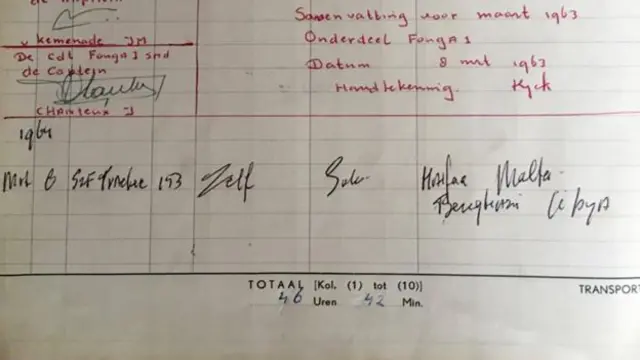 v kemenade JM
De cdt Fonga 1 smd
de Captein
CHAMTEUX J
Samenvatting voor maart 1963
Onderdeel Fonga 1
Datum 8 mrt 1963
Handtekening. Kyck
1964
Mrt 6 153 Zelf Solo Malta
Benghasi
TOTAAL [Kol. (1) tot (10)]
46 Uren 42 Min.
TRANSPORT